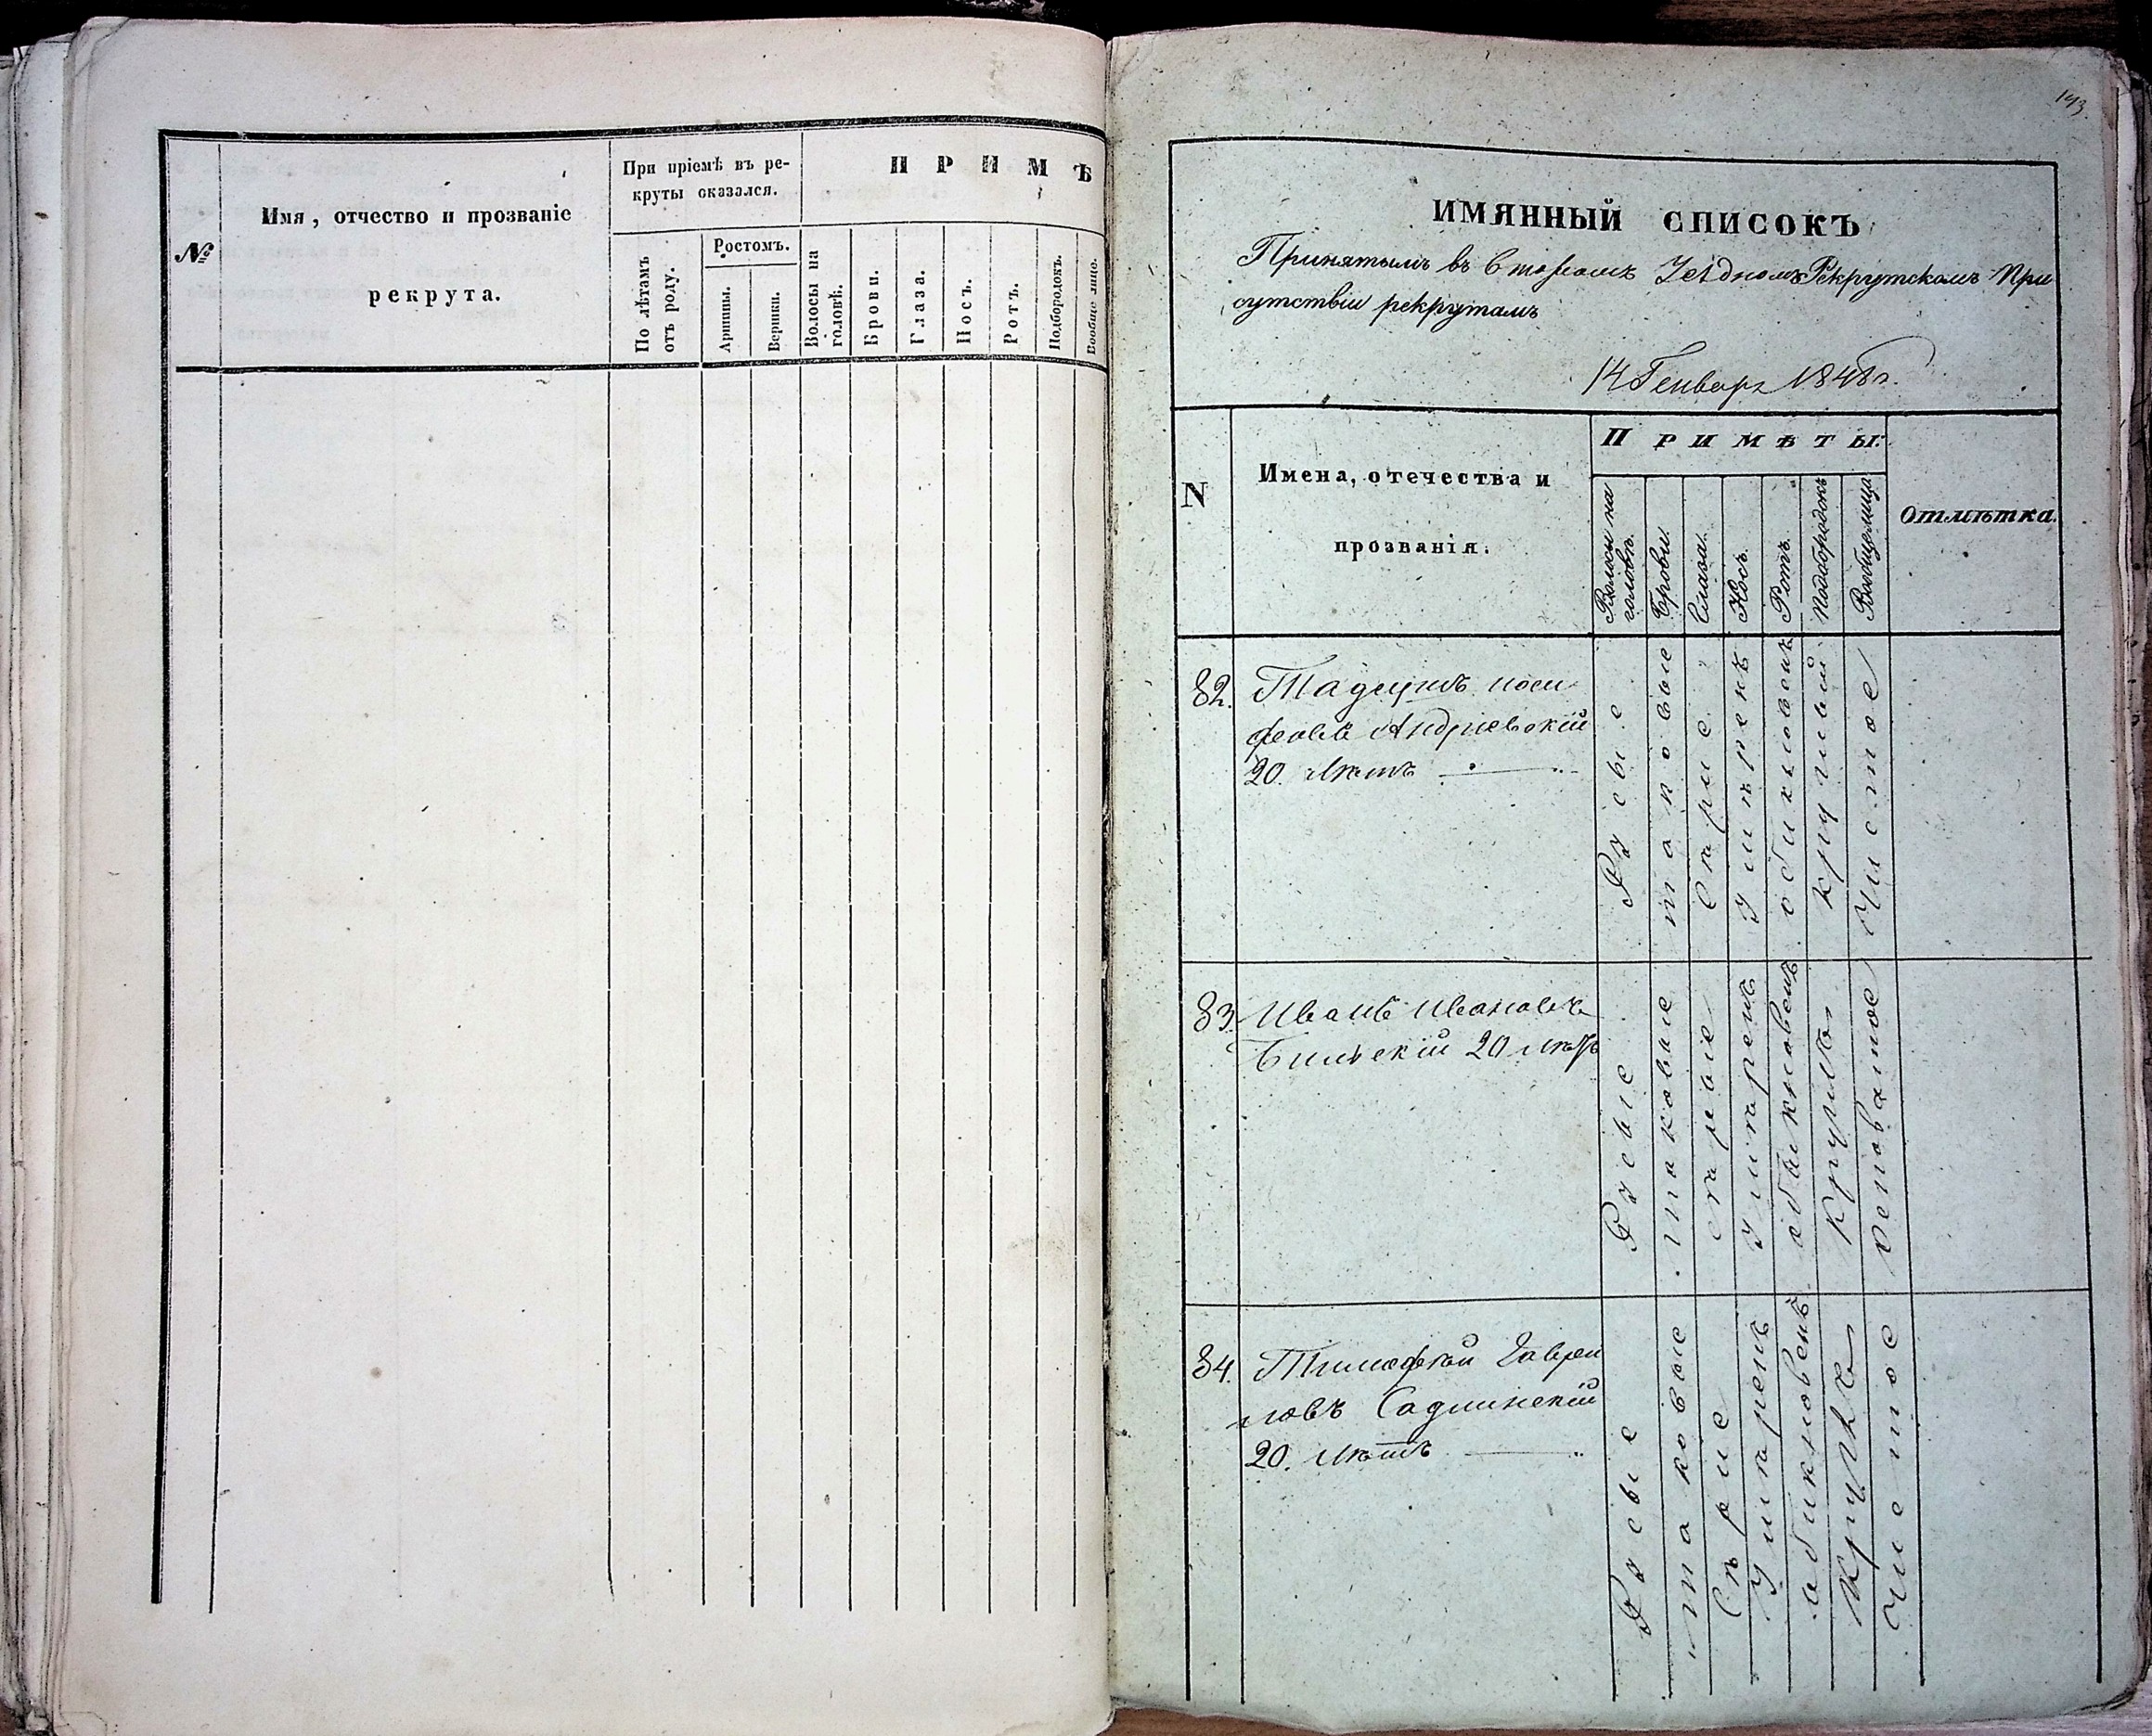 №
Имя, отчество и прозваніе
рекрута.
При пріемѣ въ ре-
круты оказался.
По лѣтамъ
отъ роду.
Ростомъ.
Аршины.
Вершки.
ПРИМѢ
Волосы на
головѣ.
Брови.
Глаза.
Носъ.
Ротъ.
Подбородокъ.
Вообще лице.
193
ИМЯННЫЙ СПИСОКЪ
Принятымъ въ Второмъ Уездномъ Рекрутскомъ При
сутствіи рекрутамъ
14 Генваря 1848 г.
N
Имена, отечества и
прозванія.
ПРИМѢТЫ:
Волосы на
головѣ.
Брови.
Глаза.
Носъ.
Ротъ.
Подбородокъ
Вообще лица
Отмѣтка.
82.
Тадеушъ Носи
фовъ Андріевскій
20. лѣтъ
Русые
таковые
Сѣрые
Умѣренъ
обикновенъ
круглый
Чистое
83.
Иванъ Ивановъ
Бильскій 20 лѣтъ
Русые
таковые
сѣрые
Умѣренъ
обыкновенъ
Круглъ
84.
Тимофей Гаври
ловъ Садлинскій
20. лѣтъ
Русые
таковые
Сѣрые
Умѣренъ
обикновенъ
Круглъ
Чистое